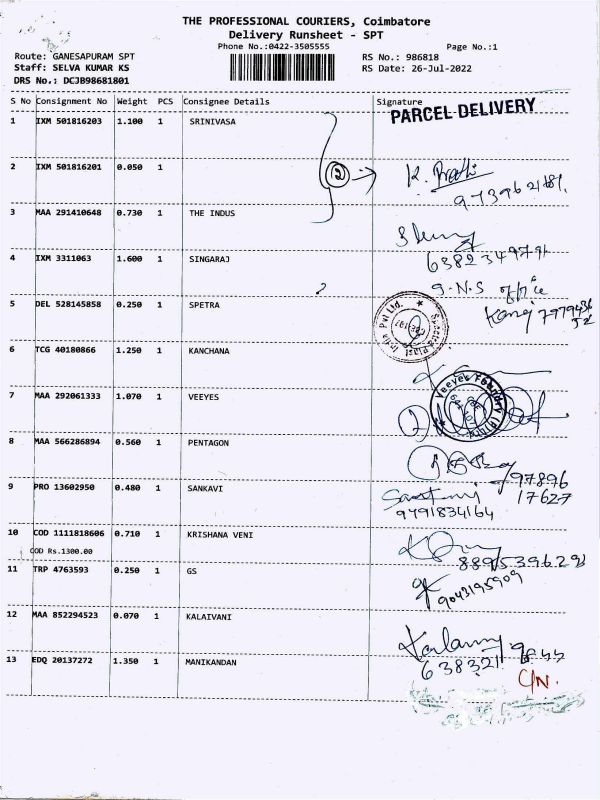 THE PROFESSIONAL COURIERS, Coimbatore
Delivery Runsheet - SPT
Phone No.:0422-3505555
Page No.:1
Route: GANESAPURAM SPT
Staff: SELVA KUMAR KS
DRS No.: DCJB98681801
RS No.: 986818
RS Date: 26-Jul-2022
S No Consignment No Weight PCS Consignee Details Signature
PARCEL DELIVERY
1 IXM 501816203 1.100 1 SRINIVASA
2 IXM 501816201 0.050 1
2
3 MAA 291410648 0.730 1 THE INDUS
4 IXM 3311063 1.600 1 SINGARAJ
6382349791
G.N.S office
5 DEL 528145858 0.250 1 SPETRA
6 TCG 40180866 1.250 1 KANCHANA
7 MAA 292061333 1.070 1 VEEYES
8 MAA 566286894 0.560 1 PENTAGON
97896
17627
9 PRO 13602950 0.480 1 SANKAVI
9791834164
10 COD 1111818606 0.710 1 KRISHANA VENI
COD Rs.1300.00
8895396293
11 TRP 4763593 0.250 1 GS
9043195909
12 MAA 852294523 0.070 1 KALAIVANI
13 EDQ 20137272 1.350 1 MANIKANDAN
C/N.